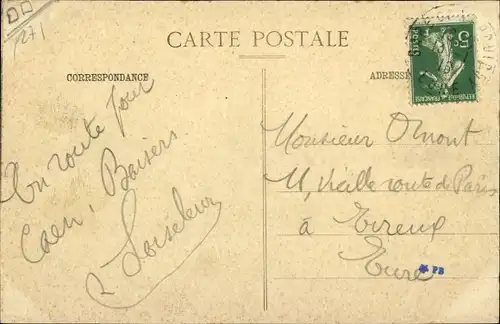 1271
CARTE POSTALE
CORRESPONDANCE
ADRESSE
5c
POSTES
REPUBLIQUE FRANÇAISE
En route pour
Caen, Baisers
Loiseleur
Monsieur Omont
11, vieille route de Paris
à Evreux
Eure
PB